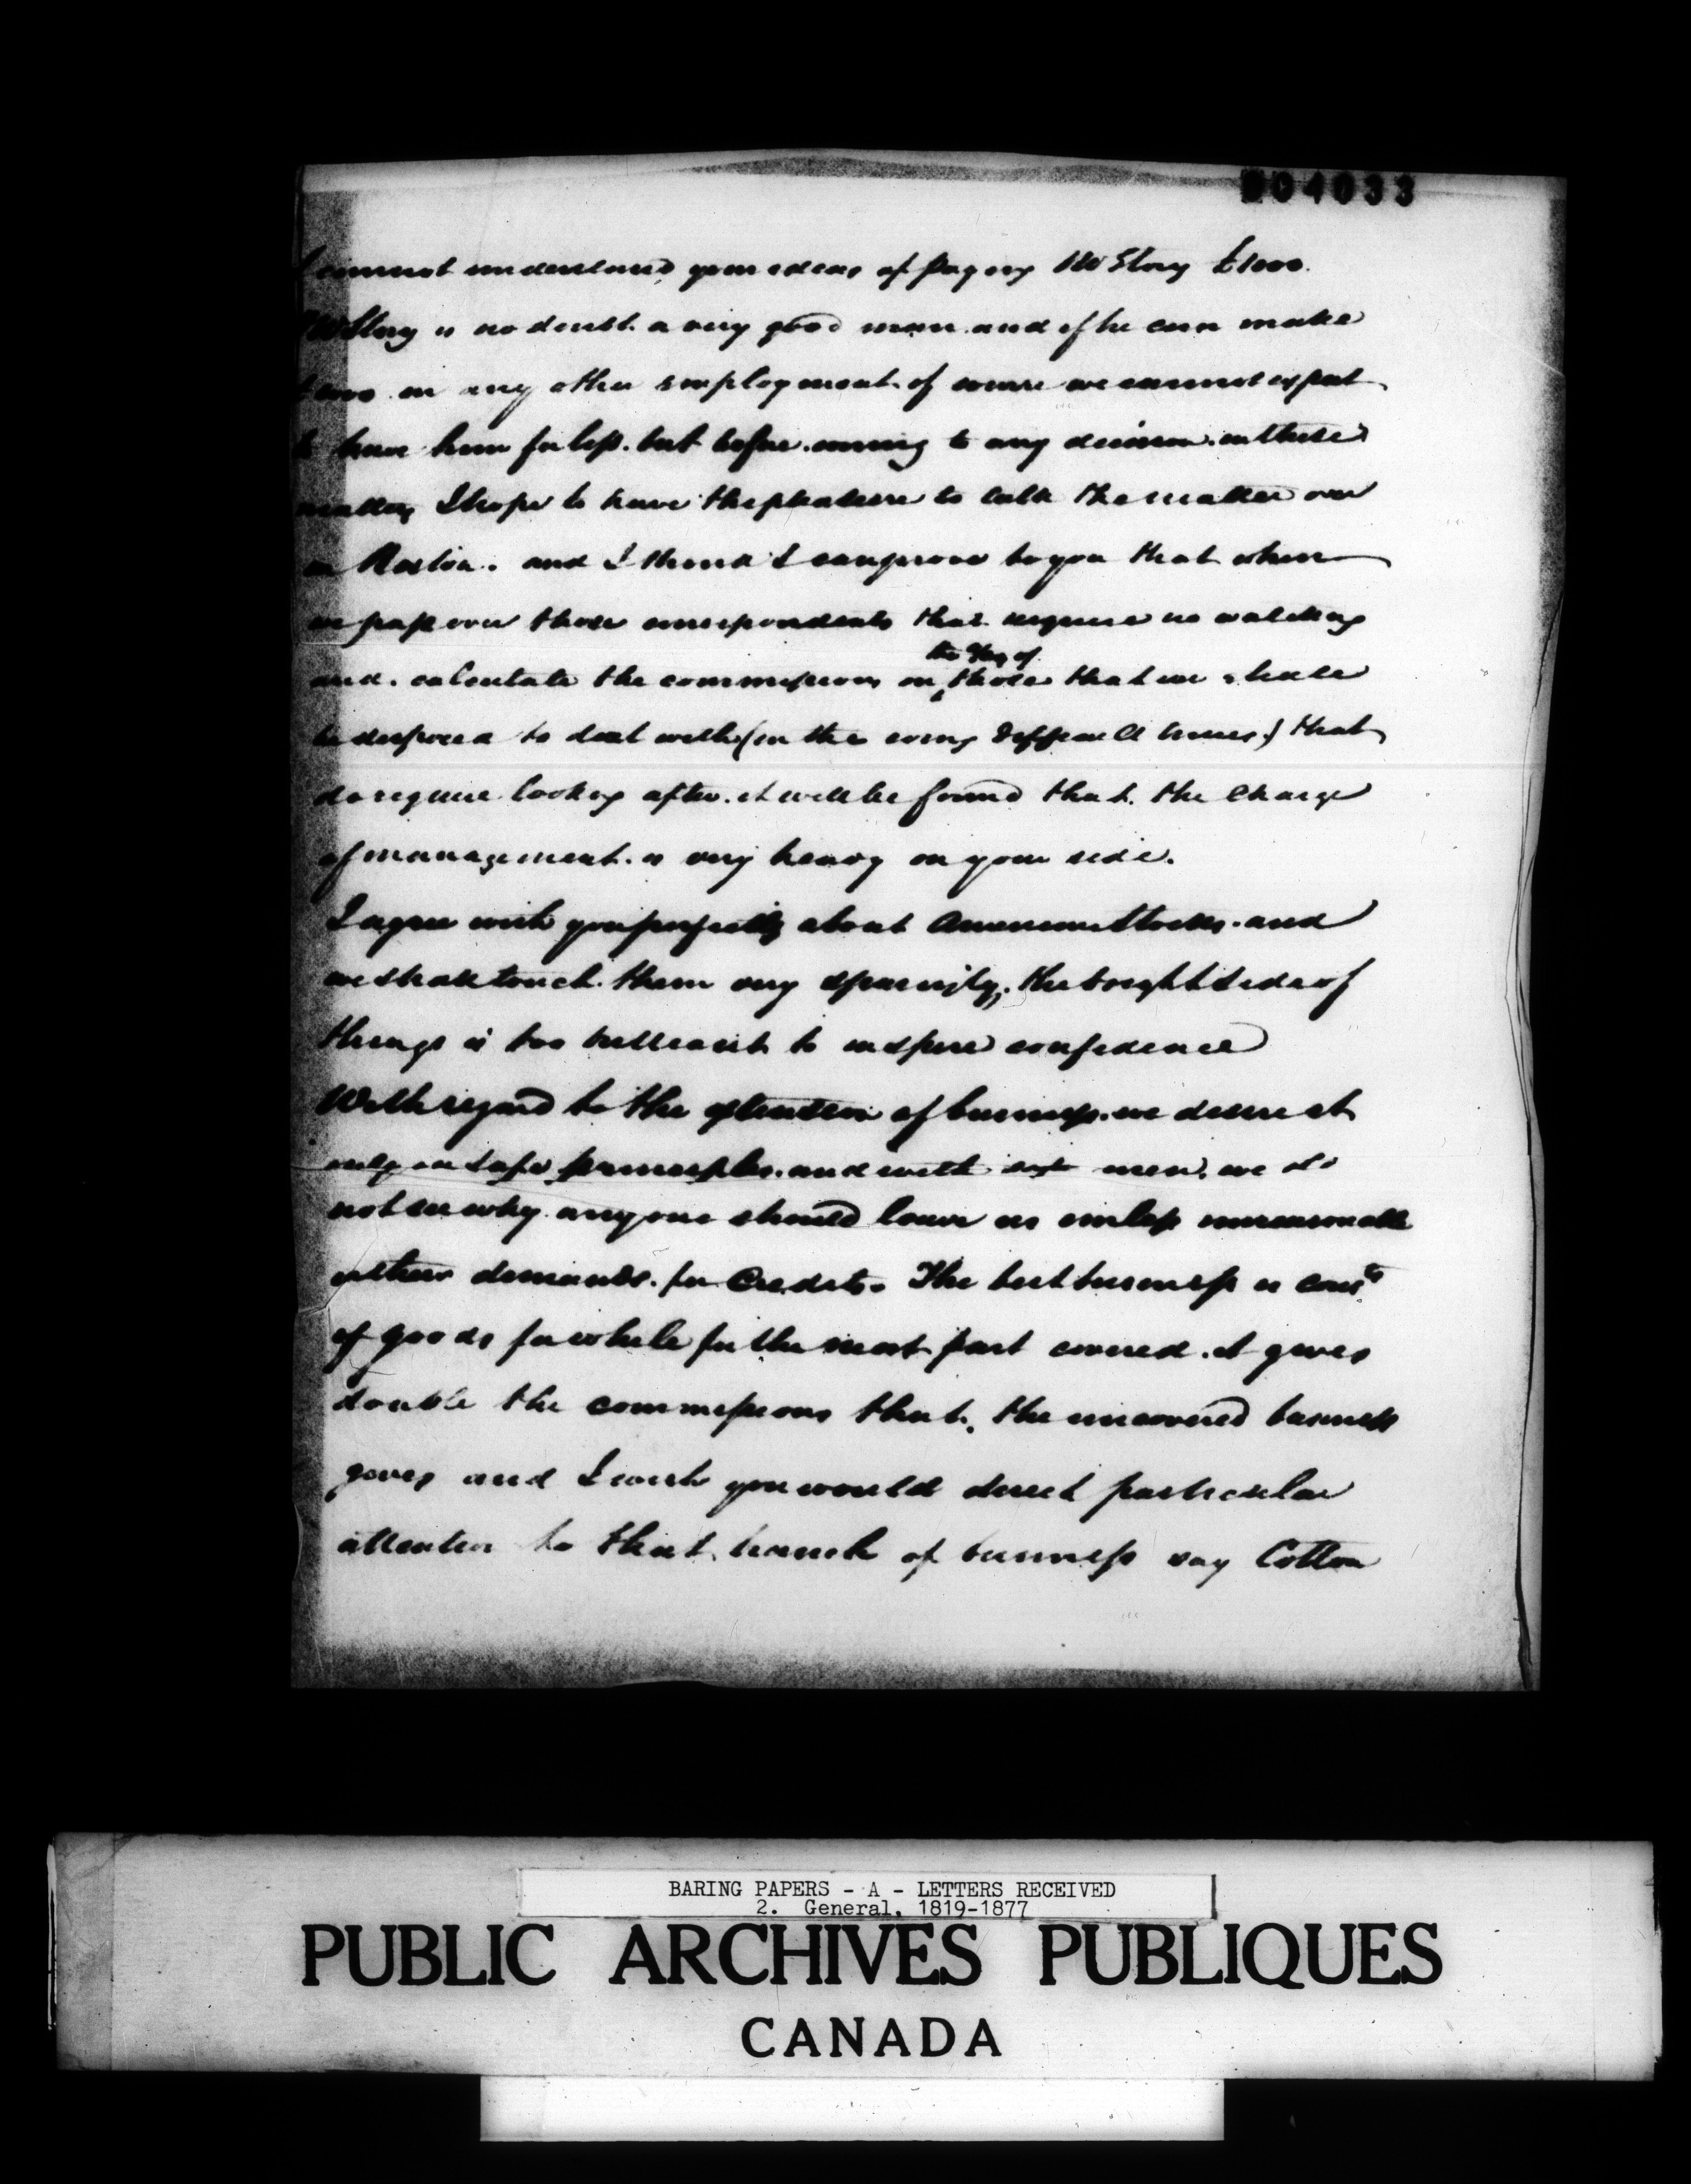 004033
I cannot understand your ideas of paying W Story £1000.
W Story is no doubt a very good man and if he can make
in any other employment of course we cannot expect
to have him for less. but before coming to any decision in these
matters I hope to have the pleasure to talk the matter over
in Boston. and I think I can prove to you that when
we pass over those correspondents that require no watching
the
and. calculate the commissions on those that we shall
be disposed to deal with (in the difficult times) that
do require looking after. it will be found that. the charge
of management. is very heavy on your side.
I agree with you perfectly about American Stocks. and
we shall touch. them very sparingly. the bright side of
things is too brilliant to inspire confidence
With regard to the extension of business. we desire it
only on safe principles. and with safe men. we do
not see why any one should leave us unless unreasonable
in their demands. for Credits. The best business is consts
of goods for while for the most part covered. it gives
double the commissions that. the uncovered business
gives and I wish you would direct particular
attention to that branch of business say Cotton
BARING PAPERS - A - LETTERS RECEIVED
2. General, 1819-1877
PUBLIC ARCHIVES PUBLIQUES
CANADA